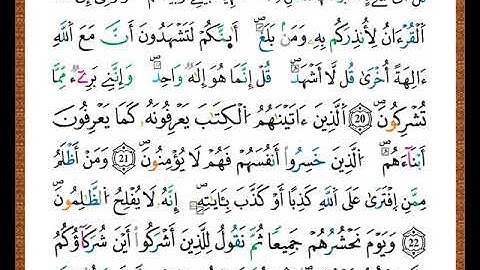 اَلْقُرْءَانُ لِأُنذِرَكُم بِهِۦ وَمَنۢ بَلَغَۖ أَئِنَّكُمْ لَتَشْهَدُونَ أَنَّ مَعَ اَللَّهِ
ءَالِهَةً أُخْرَىٰۖ قُل لَّا أَشْهَدُۖ قُلْ إِنَّمَا هُوَ إِلَٰهٌ وَٰحِدٌۖ وَإِنَّنِے بَرِےٓءٌ مِّمَّا
تُشْرِكُونَۖ 20 اَلذِينَ ءَاتَيْنَٰهُمُ اُلْكِتَٰبَ يَعْرِفُونَهُۥ كَمَا يَعْرِفُونَ
أَبْنَآءَهُمُۖ اُلذِينَ خَسِرُوٓاْ أَنفُسَهُمْ فَهُمْ لَا يُؤْمِنُونَۖ 21 وَمَنْ أَظْلَمُ
مِمَّنِ اِفْتَرَىٰ عَلَى اَللَّهِ كَذِبًا أَوْ كَذَّبَ بِـَٔايَٰتِهِۦۖ إِنَّهُۥ لَا يُفْلِحُ اُلظَّٰلِمُونَۖ
22 وَيَوْمَ نَحْشُرُهُمْ جَمِيعًا ثُمَّ نَقُولُ لِلذِينَ أَشْرَكُوٓاْ أَيْنَ شُرَكَآؤُكُمُ